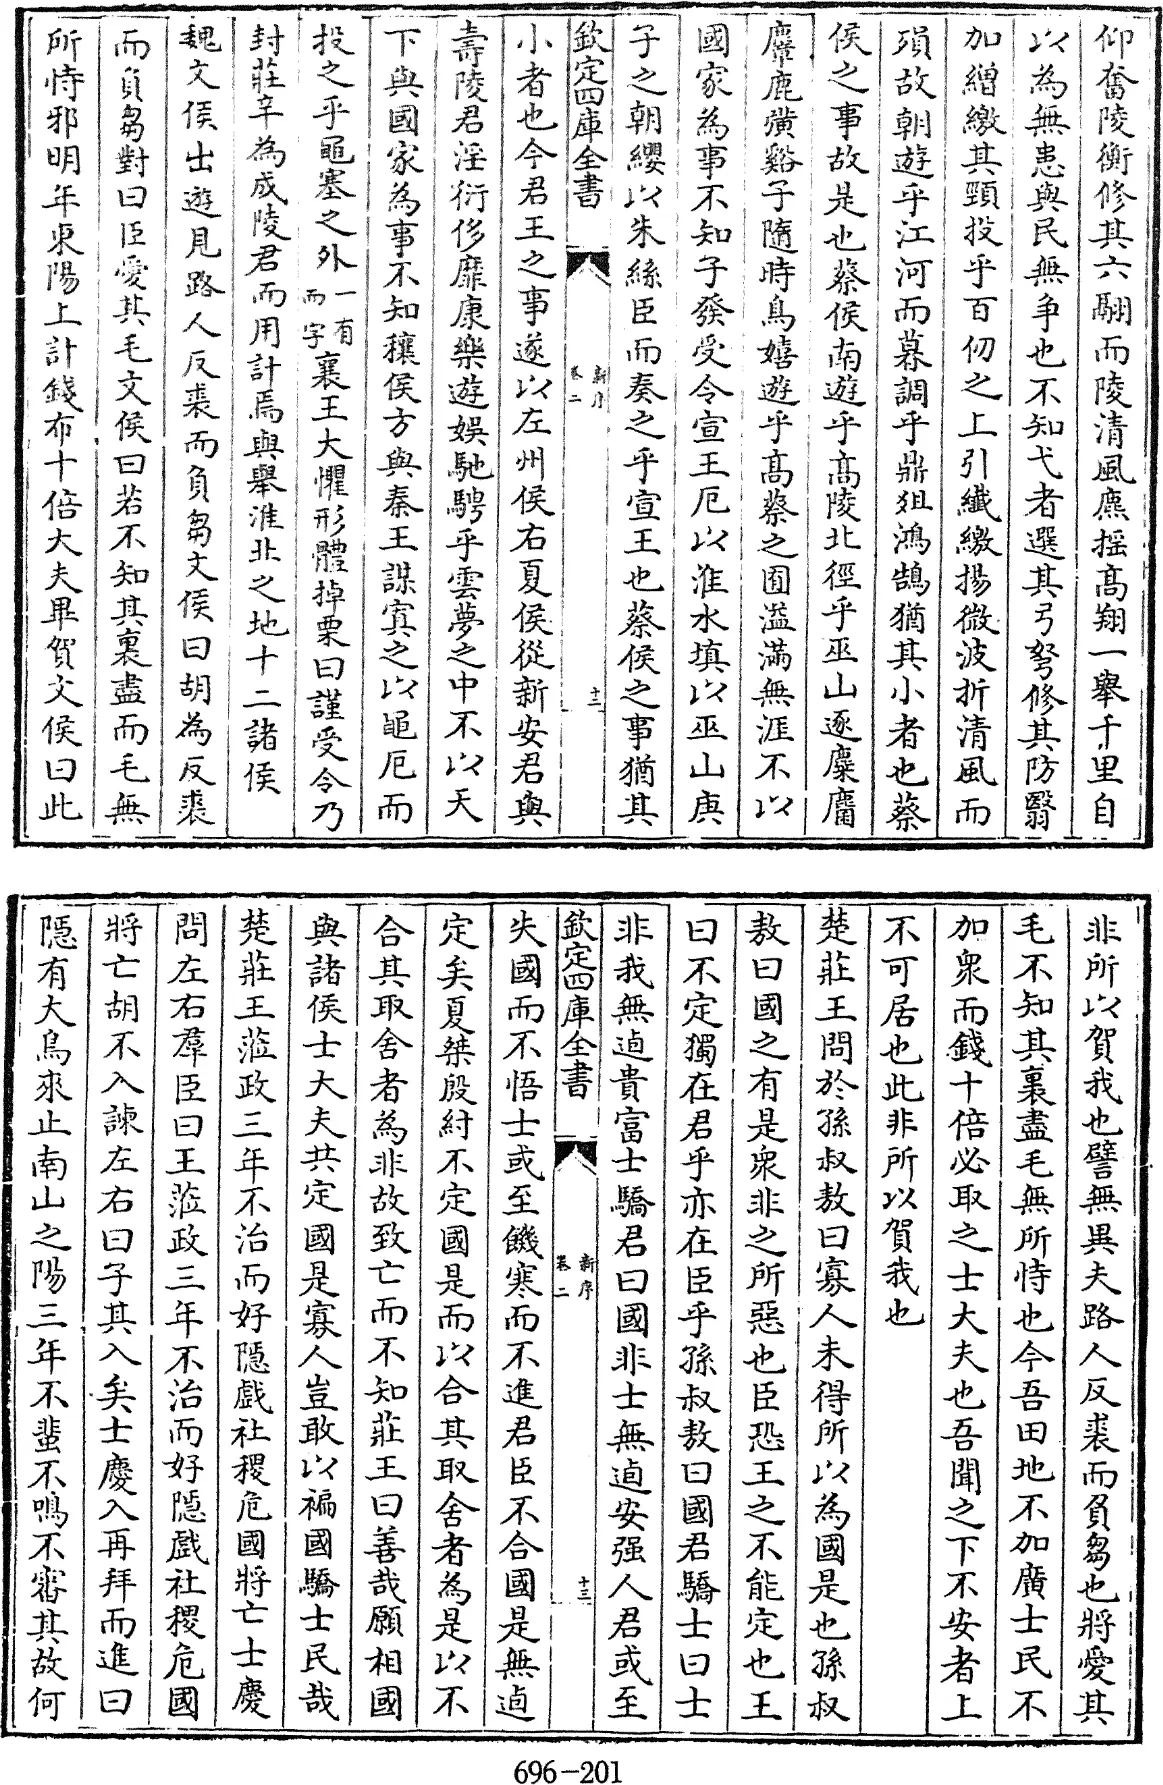 仰奮陵衡修其六翮而陵清風麃搖髙翔一舉千里自
以為無患與民無争也不知弋者選其弓弩修其防翳
加繒繳其頸投乎百仞之上引纖繳揚微波折清風而
殞故朝遊乎江河而暮調乎鼎俎鴻鵠猶其小者也蔡
侯之事故是也蔡侯南遊乎髙陵北徑乎巫山逐麋麕
麞鹿彉谿子隨時鳥嬉遊乎髙蔡之囿溢滿無涯不以
國家為事不知子發受令宣王厄以淮水填以巫山庚
子之朝纓以朱絲臣而奏之乎宣王也蔡侯之事猶其
欽定四庫全書
新序
卷二
十三
小者也今君王之事遂以左州侯右夏侯從新安君與
壽陵君淫衍侈靡康樂遊娛馳騁乎雲夢之中不以天
下與國家為事不知穰侯方與秦王謀寘之以黽厄而
投之乎黽塞之外一有而字襄王大懼形體掉栗曰謹受令乃
封莊辛為成陵君而用計焉與舉淮北之地十二諸侯
魏文侯出遊見路人反裘而負芻文侯曰胡為反裘
而負芻對曰臣愛其毛文侯曰若不知其裏盡而毛無
所恃邪明年東陽上計錢布十倍大夫畢賀文侯曰此
非所以賀我也譬無異夫路人反裘而負芻也將愛其
毛不知其裏盡毛無所恃也今吾田地不加廣士民不
加衆而錢十倍必取之士大夫也吾聞之下不安者上
不可居也此非所以賀我也
楚莊王問於孫叔敖曰寡人未得所以為國是也孫叔
敖曰國之有是衆非之所惡也臣恐王之不能定也王
曰不定獨在君乎亦在臣乎孫叔敖曰國君驕士曰士
非我無逌貴富士驕君曰國非士無逌安强人君或至
欽定四庫全書
新序
卷二
十三
失國而不悟士或至饑寒而不進君臣不合國是無逌
定矣夏桀殷紂不定國是而以合其取舍者為是以不
合其取舍者為非故致亡而不知莊王曰善哉願相國
與諸侯士大夫共定國是寡人豈敢以褊國驕士民哉
楚莊王蒞政三年不治而好隱戯社稷危國將亡士慶
問左右羣臣曰王蒞政三年不治而好隱戯社稷危國
將亡胡不入諫左右曰子其入矣士慶入再拜而進曰
隱有大鳥來止南山之陽三年不蜚不鳴不審其故何
696-201